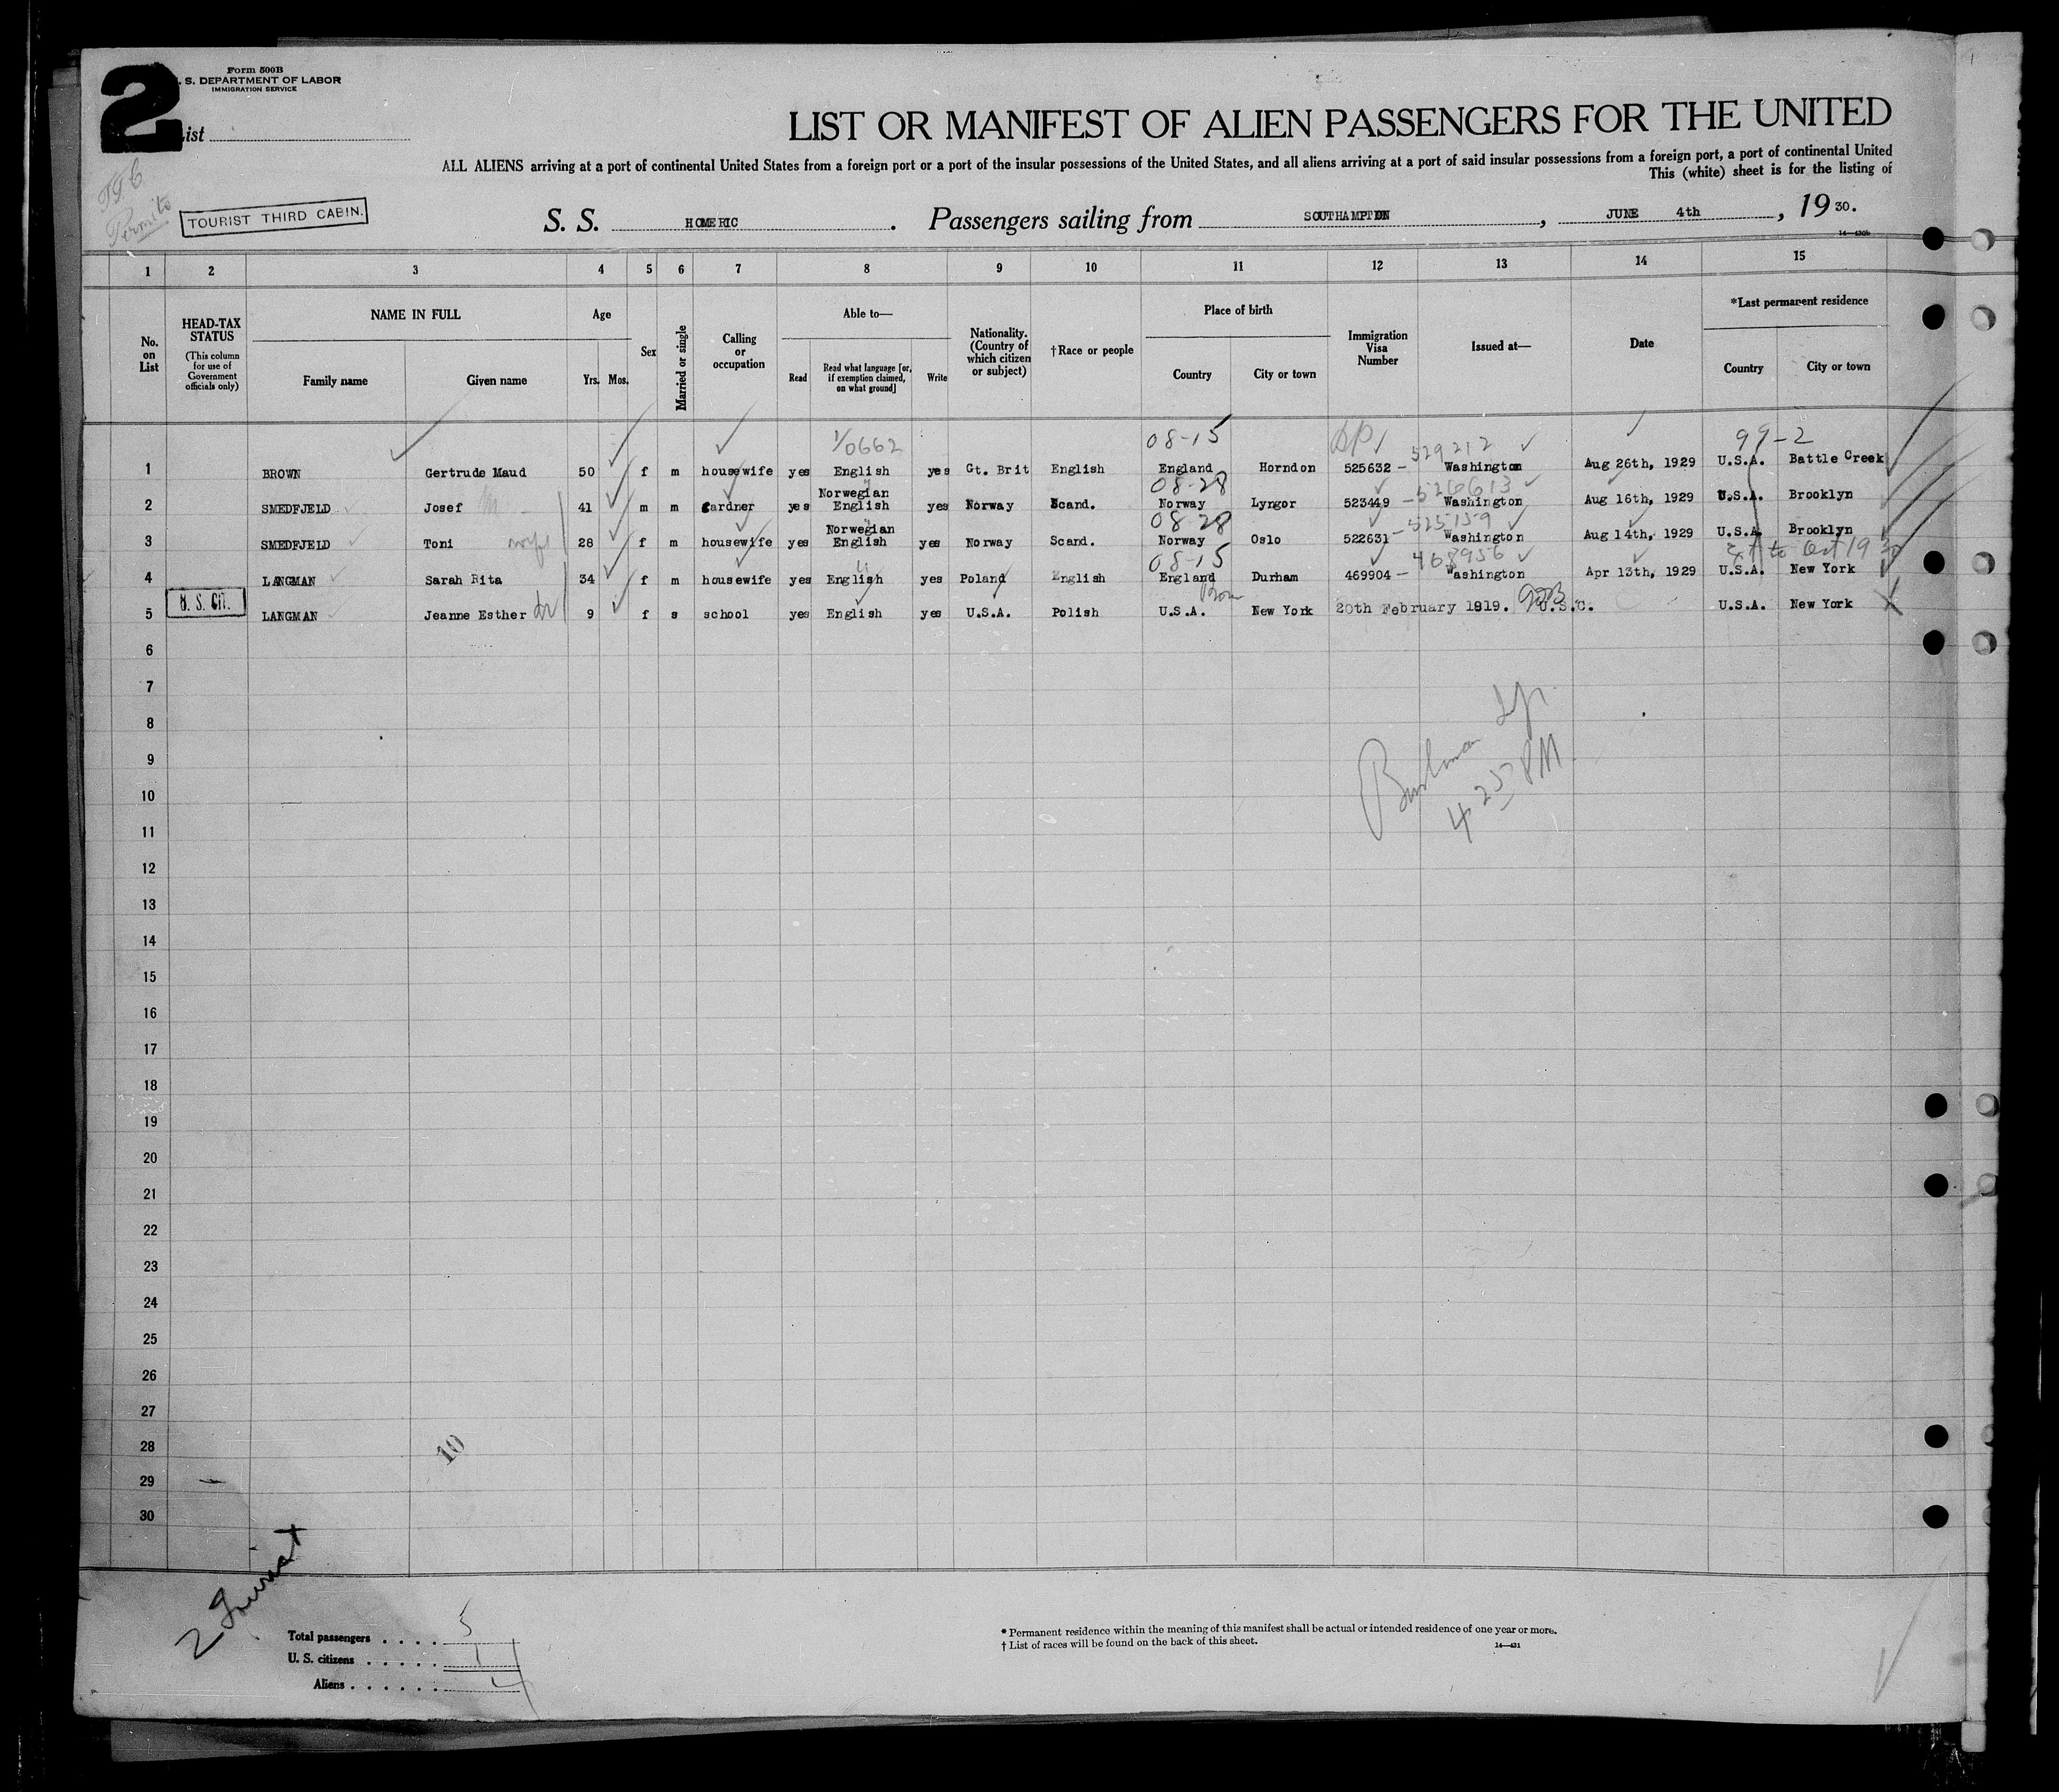 2
Form 500B
S. DEPARTMENT OF LABOR
IMMIGRATION SERVICE
List
LIST OR MANIFEST OF ALIEN PASSENGERS FOR THE UNITED
ALL ALIENS arriving at a port of continental United States from a foreign port or a port of the insular possessions of the United States, and all aliens arriving at a port of said insular possessions from a foreign port, a port of continental United
This (white) sheet is for the listing of
Permits
TOURIST THIRD CABIN.
S. S. HOMERIC. Passengers sailing from SOUTHAMPTON, JUNE 4th, 1930.
1 2 3 4 5 6 7 8 9 10 11 12 13 14 15
No. on List
HEAD-TAX STATUS (This column for use of Government officials only)
NAME IN FULL
Family name Given name
Age
Yrs. Mos.
Sex
Married or single
Calling or occupation
Able to—
Read Read what language [or, if exemption claimed, on what ground] Write
Nationality. (Country of which citizen or subject)
†Race or people
Place of birth
Country City or town
Immigration Visa Number
Issued at—
Date
*Last permanent residence
Country City or town
1/0662 08-15 529212 99-2
1 BROWN Gertrude Maud 50 f m housewife yes English yes Gt. Brit English England Horndon 525632 - Washington Aug 26th, 1929 U.S.A. Battle Creek
08-28 526613
2 SMEDFJELD Josef 41 m m gardner yes Norwegian English yes Norway Scand. Norway Lyngor 523449 - Washington Aug 16th, 1929 U.S.A. Brooklyn
08-28 525159
3 SMEDFJELD Toni wife 28 f m housewife yes Norwegian English yes Norway Scand. Norway Oslo 522631 Washington Aug 14th, 1929 U.S.A. Brooklyn
08-15 468956 to Oct 1930
4 LANGMAN Sarah Rita 34 f m housewife yes English yes Poland English England Durham 469904 - Washington Apr 13th, 1929 U.S.A. New York
U. S. CIT.
5 LANGMAN Jeanne Esther 9 f s school yes English yes U.S.A. Polish U.S.A. New York 20th February 1819. U.S.C. U.S.A. New York
6
7
8
9
10
11
12
13
14
15
16
17
18
19
20
21
22
23
24
25
26
27
28
29
30
4 25 PM
10
2 Tourist
Total passengers . . . . 5
U. S. citizens . . . . . 1
Aliens . . . . . . 4
* Permanent residence within the meaning of this manifest shall be actual or intended residence of one year or more.
† List of races will be found on the back of this sheet.
14—431